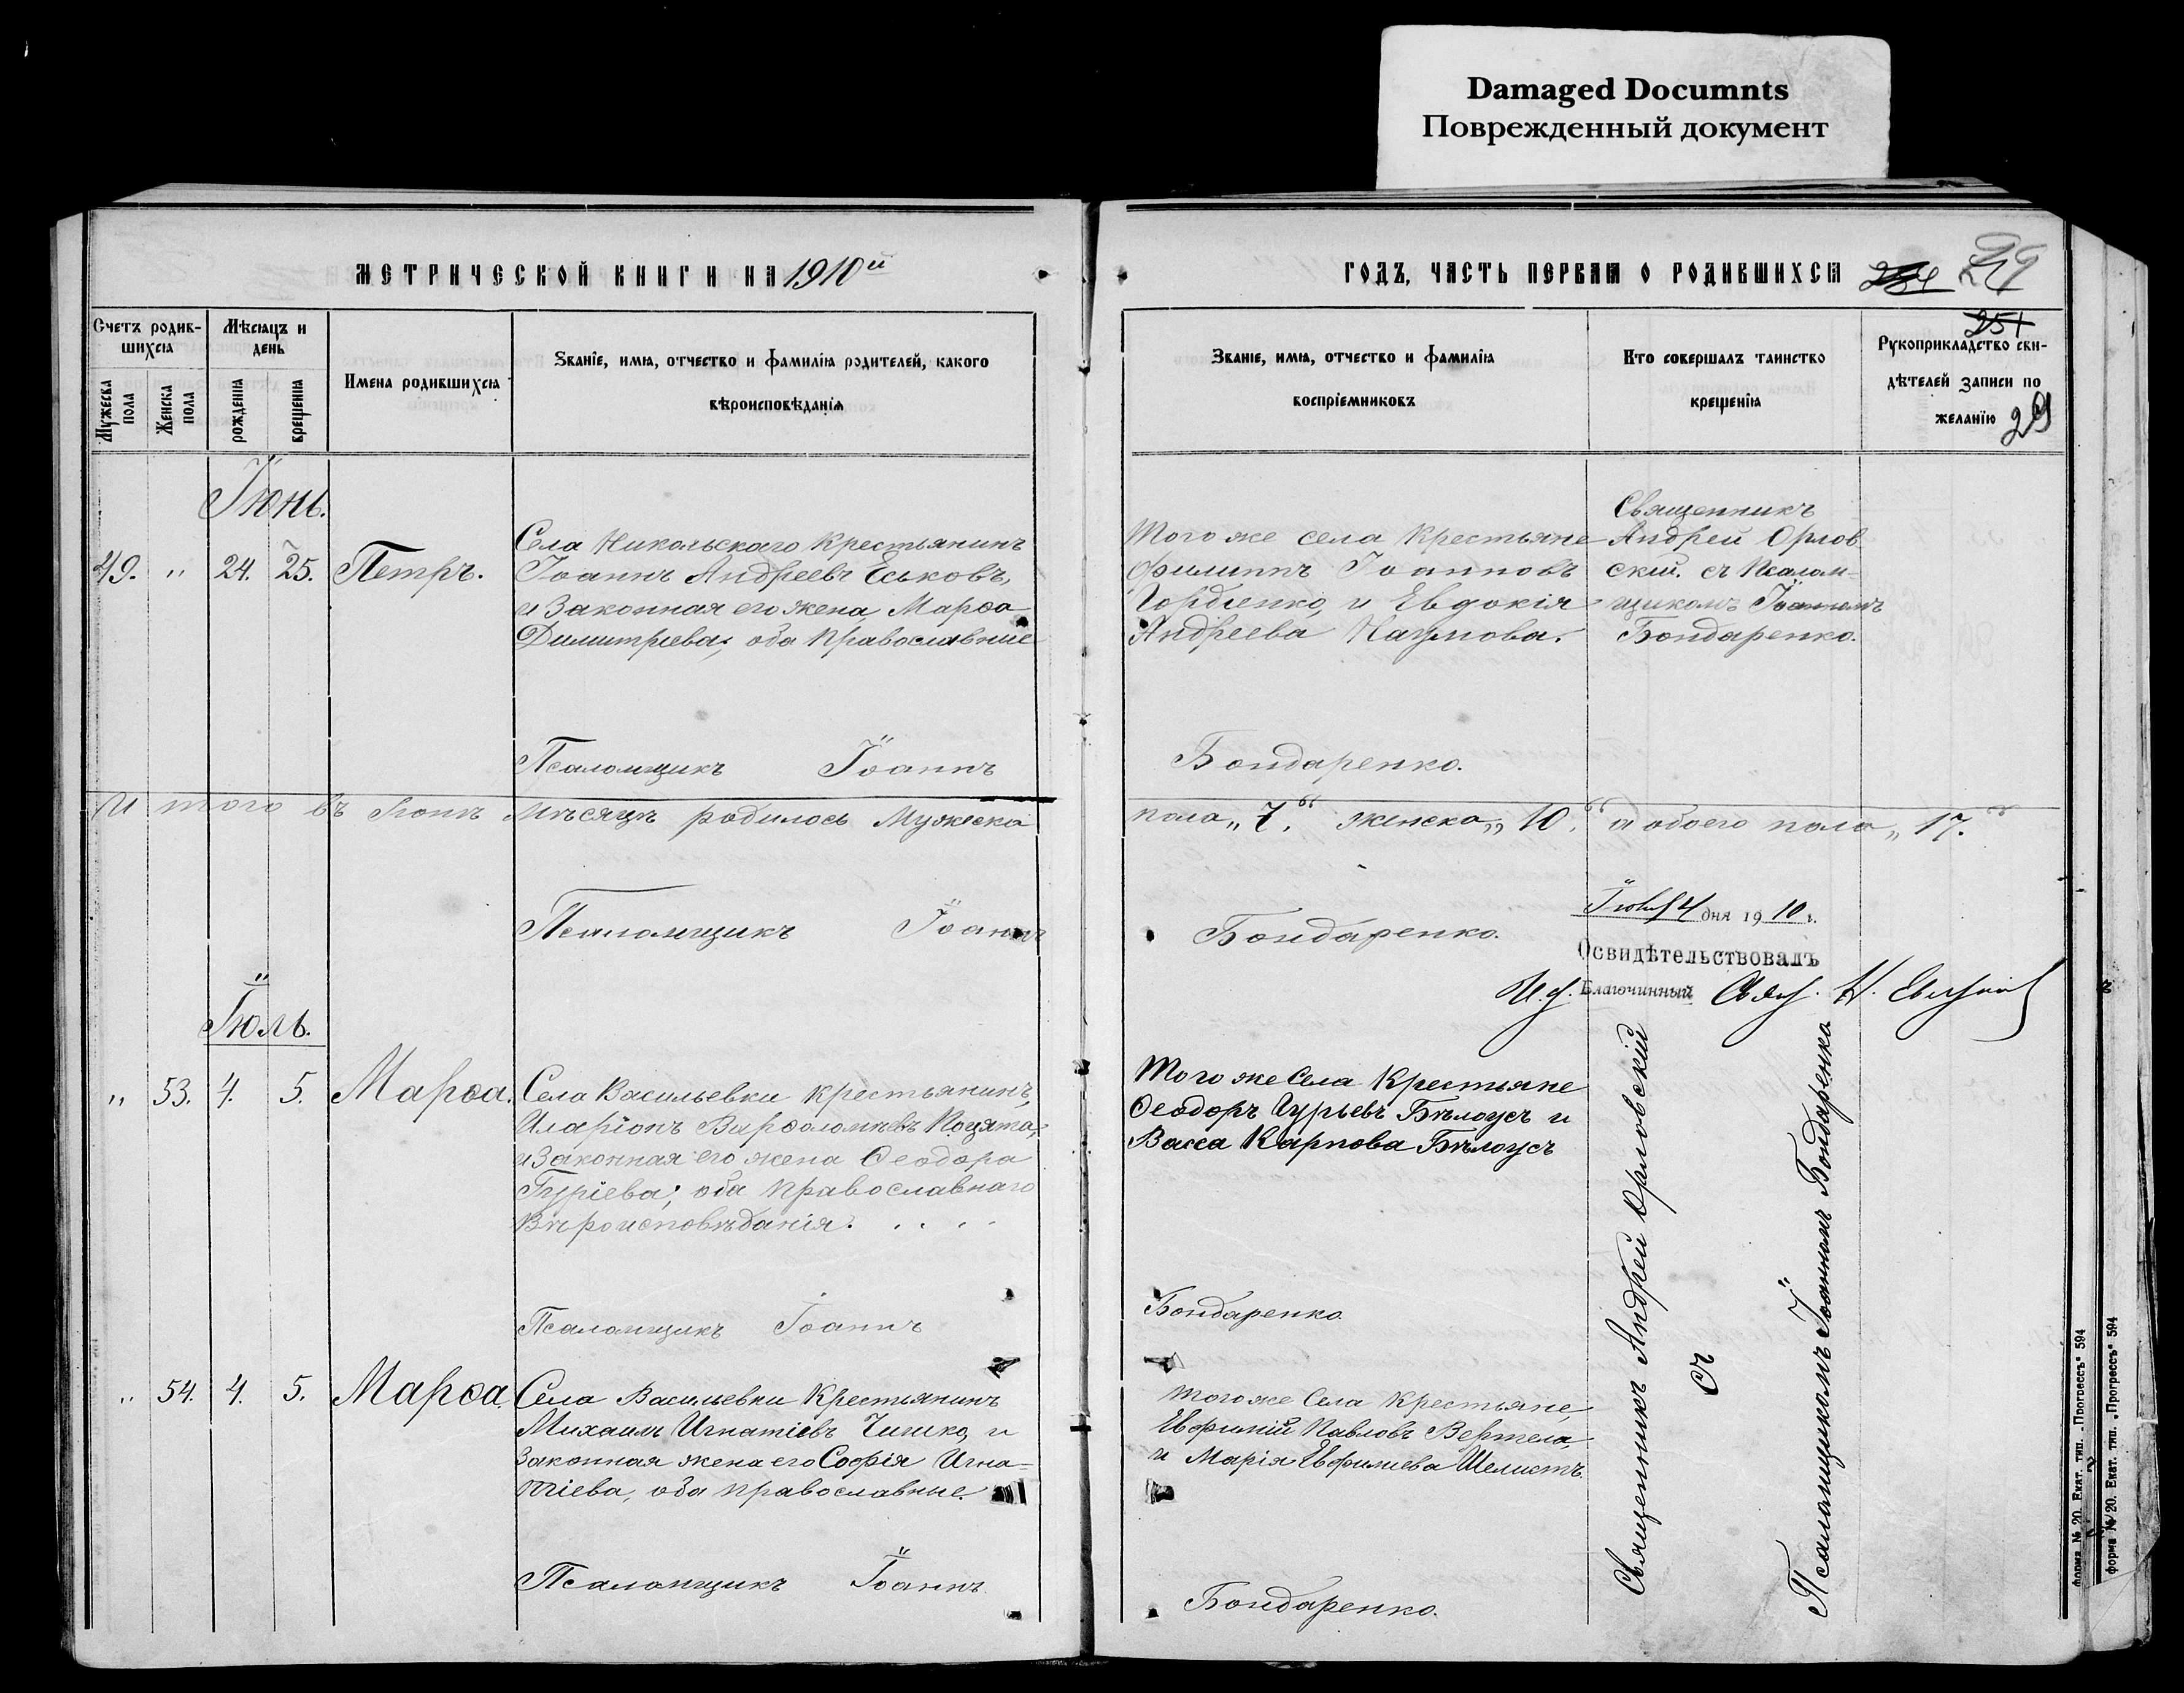 Damaged Documnts
Поврежденный документ
МЕТРИЧЕСКОЙ КНИГИ НА 1910й
Счетъ родив-
шихся
Мѣсяцъ и
день
Мужеска
пола
Женска
пола
рожденія
крещенія
Имена родившихся
Званіе, имя, отчество и фамилія родителей, какого
вѣроисповѣданія
Іюнь.
49. „ 24. 25. Петръ.
Села Никольскаго крестьянинъ
Іоаннъ Андреевъ Еськовъ,
и законная его жена Марѳа
Димитріева, оба православные
Псаломщикъ Іоаннъ
И того въ Іюнѣ мѣсяцѣ родилось мужеска
Псаломщикъ Іоаннъ
Іюль.
„ 53. 4. 5. Марѳа.
Села Васильевки крестьянинъ,
Иларіонъ Варѳоломѣевъ
и законная его жена Ѳеодора
Гуріева; оба православнаго
Вѣроисповѣданія. . . .
Псаломщикъ Іоаннъ
„ 54. 4. 5. Марѳа.
Села Васильевки крестьянинъ
Михаилъ Игнатіевъ и
законная жена его Софія Игна-
тіева, оба православные.
Псаломщикъ Іоаннъ
ГОДЪ, ЧАСТЬ ПЕРВАЯ О РОДИВШИХСЯ
251
Званіе, имя, отчество и фамилія
воспріемниковъ
Кто совершалъ таинство
крещенія
Рукоприкладство сви-
дѣтелей записи по
желанію 29
Того же села крестьяне
Филиппъ Іоанновъ
Гордіенко, и Евдокія
Андреева Наумова.
Священникъ
Андрей Орлов-
скій. съ Псалом-
щикомъ Іоанномъ
Бондаренко.
Бондаренко.
пола „7." женска „10." а обоего пола „17."
Бондаренко.
дня 1910 г.
Освидѣтельствовалъ
И.д. Благочинный Свящ. Н.
Того же села крестьяне
Ѳеодоръ Гурьевъ Бѣлоусъ и
Васса Карпова Бѣлоусъ
Бондаренко
Того же села крестьяне,
Евфимій Павловъ Вертела,
и Марія Евфимиева Шелистъ.
Бондаренко.
Священникъ Андрей Орловскій
съ
Псаломщикомъ Іоанномъ Бондаренка
форма № 20. Екат. тип. „Прогрессъ" 594
форма № 20. Екат. тип. „Прогрессъ" 594